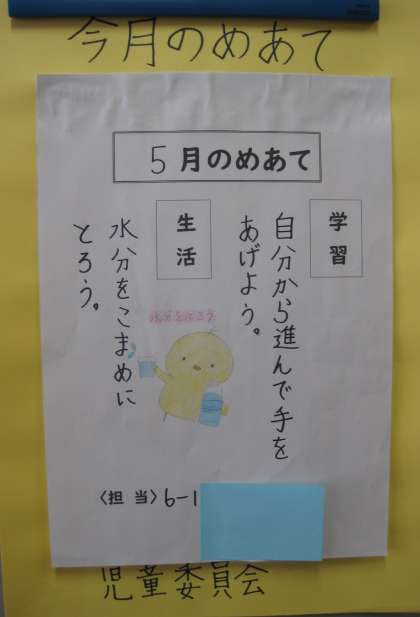 今月のめあて
5月のめあて
学習
自分から進んで手を
あげよう。
生活
水分をこまめに
とろう。
水分をとろう
〈担当〉6-1
児童委員会